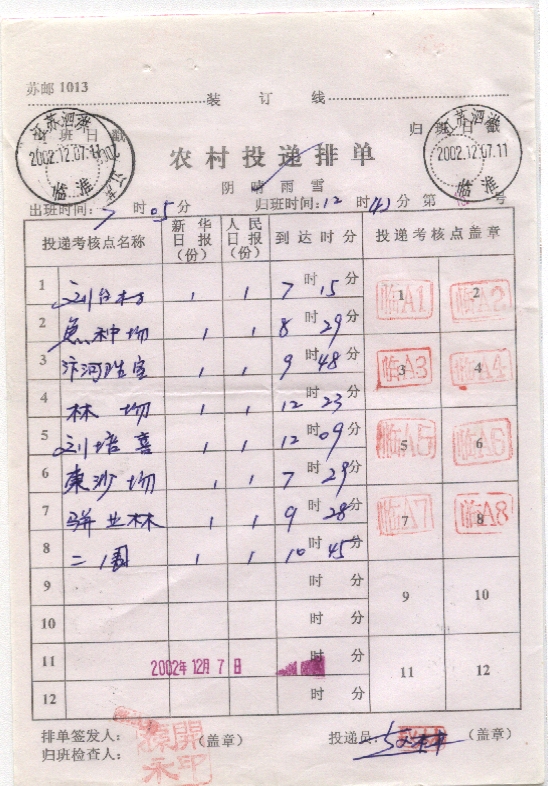 苏邮 1013
装 订 线
出班日戳 归班日戳
江苏泗洪 2002.12.07.11 临淮
江苏泗洪 2002.12.07.11 临淮
农村投递排单
阴 晴 雨 雪
出班时间：7 时 05 分 归班时间：12 时 43 分 第 号
投递考核点名称 新华日报（份） 人民日报（份） 到达时分 投递考核点盖章
1 刘台村 1 1 7 时 15 分 1 临A1 2 临A2
2 鱼种场 1 1 8 时 29 分
3 汴河 1 1 9 时 48 分 3 临A3 4 临A4
4 林场 1 1 12 时 23 分
5 刘培喜 1 1 12 时 09 分 5 临A5 6 临A6
6 东沙场 1 1 7 时 29 分
7 林 1 1 9 时 28 分 7 临A7 8 临A8
8 二圈 1 1 10 时 45 分
9 时 分 9 10
10 时 分
11 2002年12月7日 时 分 11 12
12 时 分
排单签发人： （盖章） 投递员： （盖章）
归班检查人：
開永印